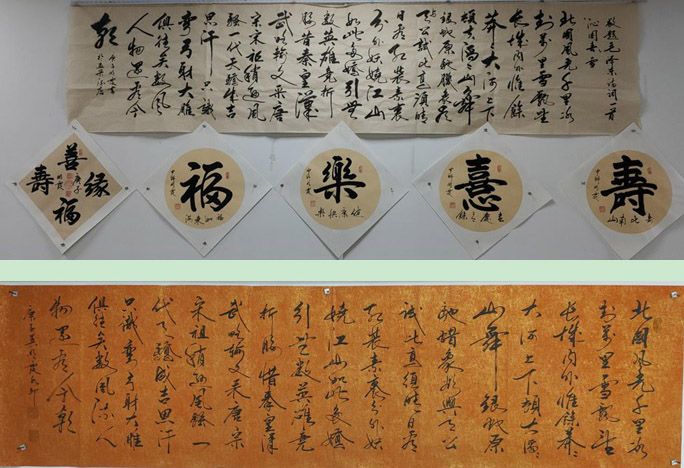 毛泽东诗词一首
沁园春雪
北国風光千里冰
封万里雪飘望
长城内外惟馀
莽莽大河上下
顿失滔滔山舞
银蛇原驰腊象欲
天公試比高須晴
日看红装素裹
分外妖娆江山
如此多嬌引無
数英雄竞折
腰惜秦皇漢
武略输文采唐
宋祖稍逊風
骚一代天骄成吉
思汗只識
弯弓射大雕
俱往矣数風
人物还看今
朝
善
缘
壽
福
福
福如東海
樂
健康快樂
憙
壽
壽比南山
北国风光千里冰
封万里雪飘望
长城内外惟馀莽莽
大河上下顿失滔滔
山舞银蛇原
驰腊象欲與天公
试比高须晴日看
红装素裹分外妖
娆江山如此多嬌
引无数英雄竞
折腰惜秦皇漢
武略输文采唐宗
宋祖稍逊风骚一
代天骄成吉思汗
只识弯弓射大雕
俱往矣数風流人
物还看今朝